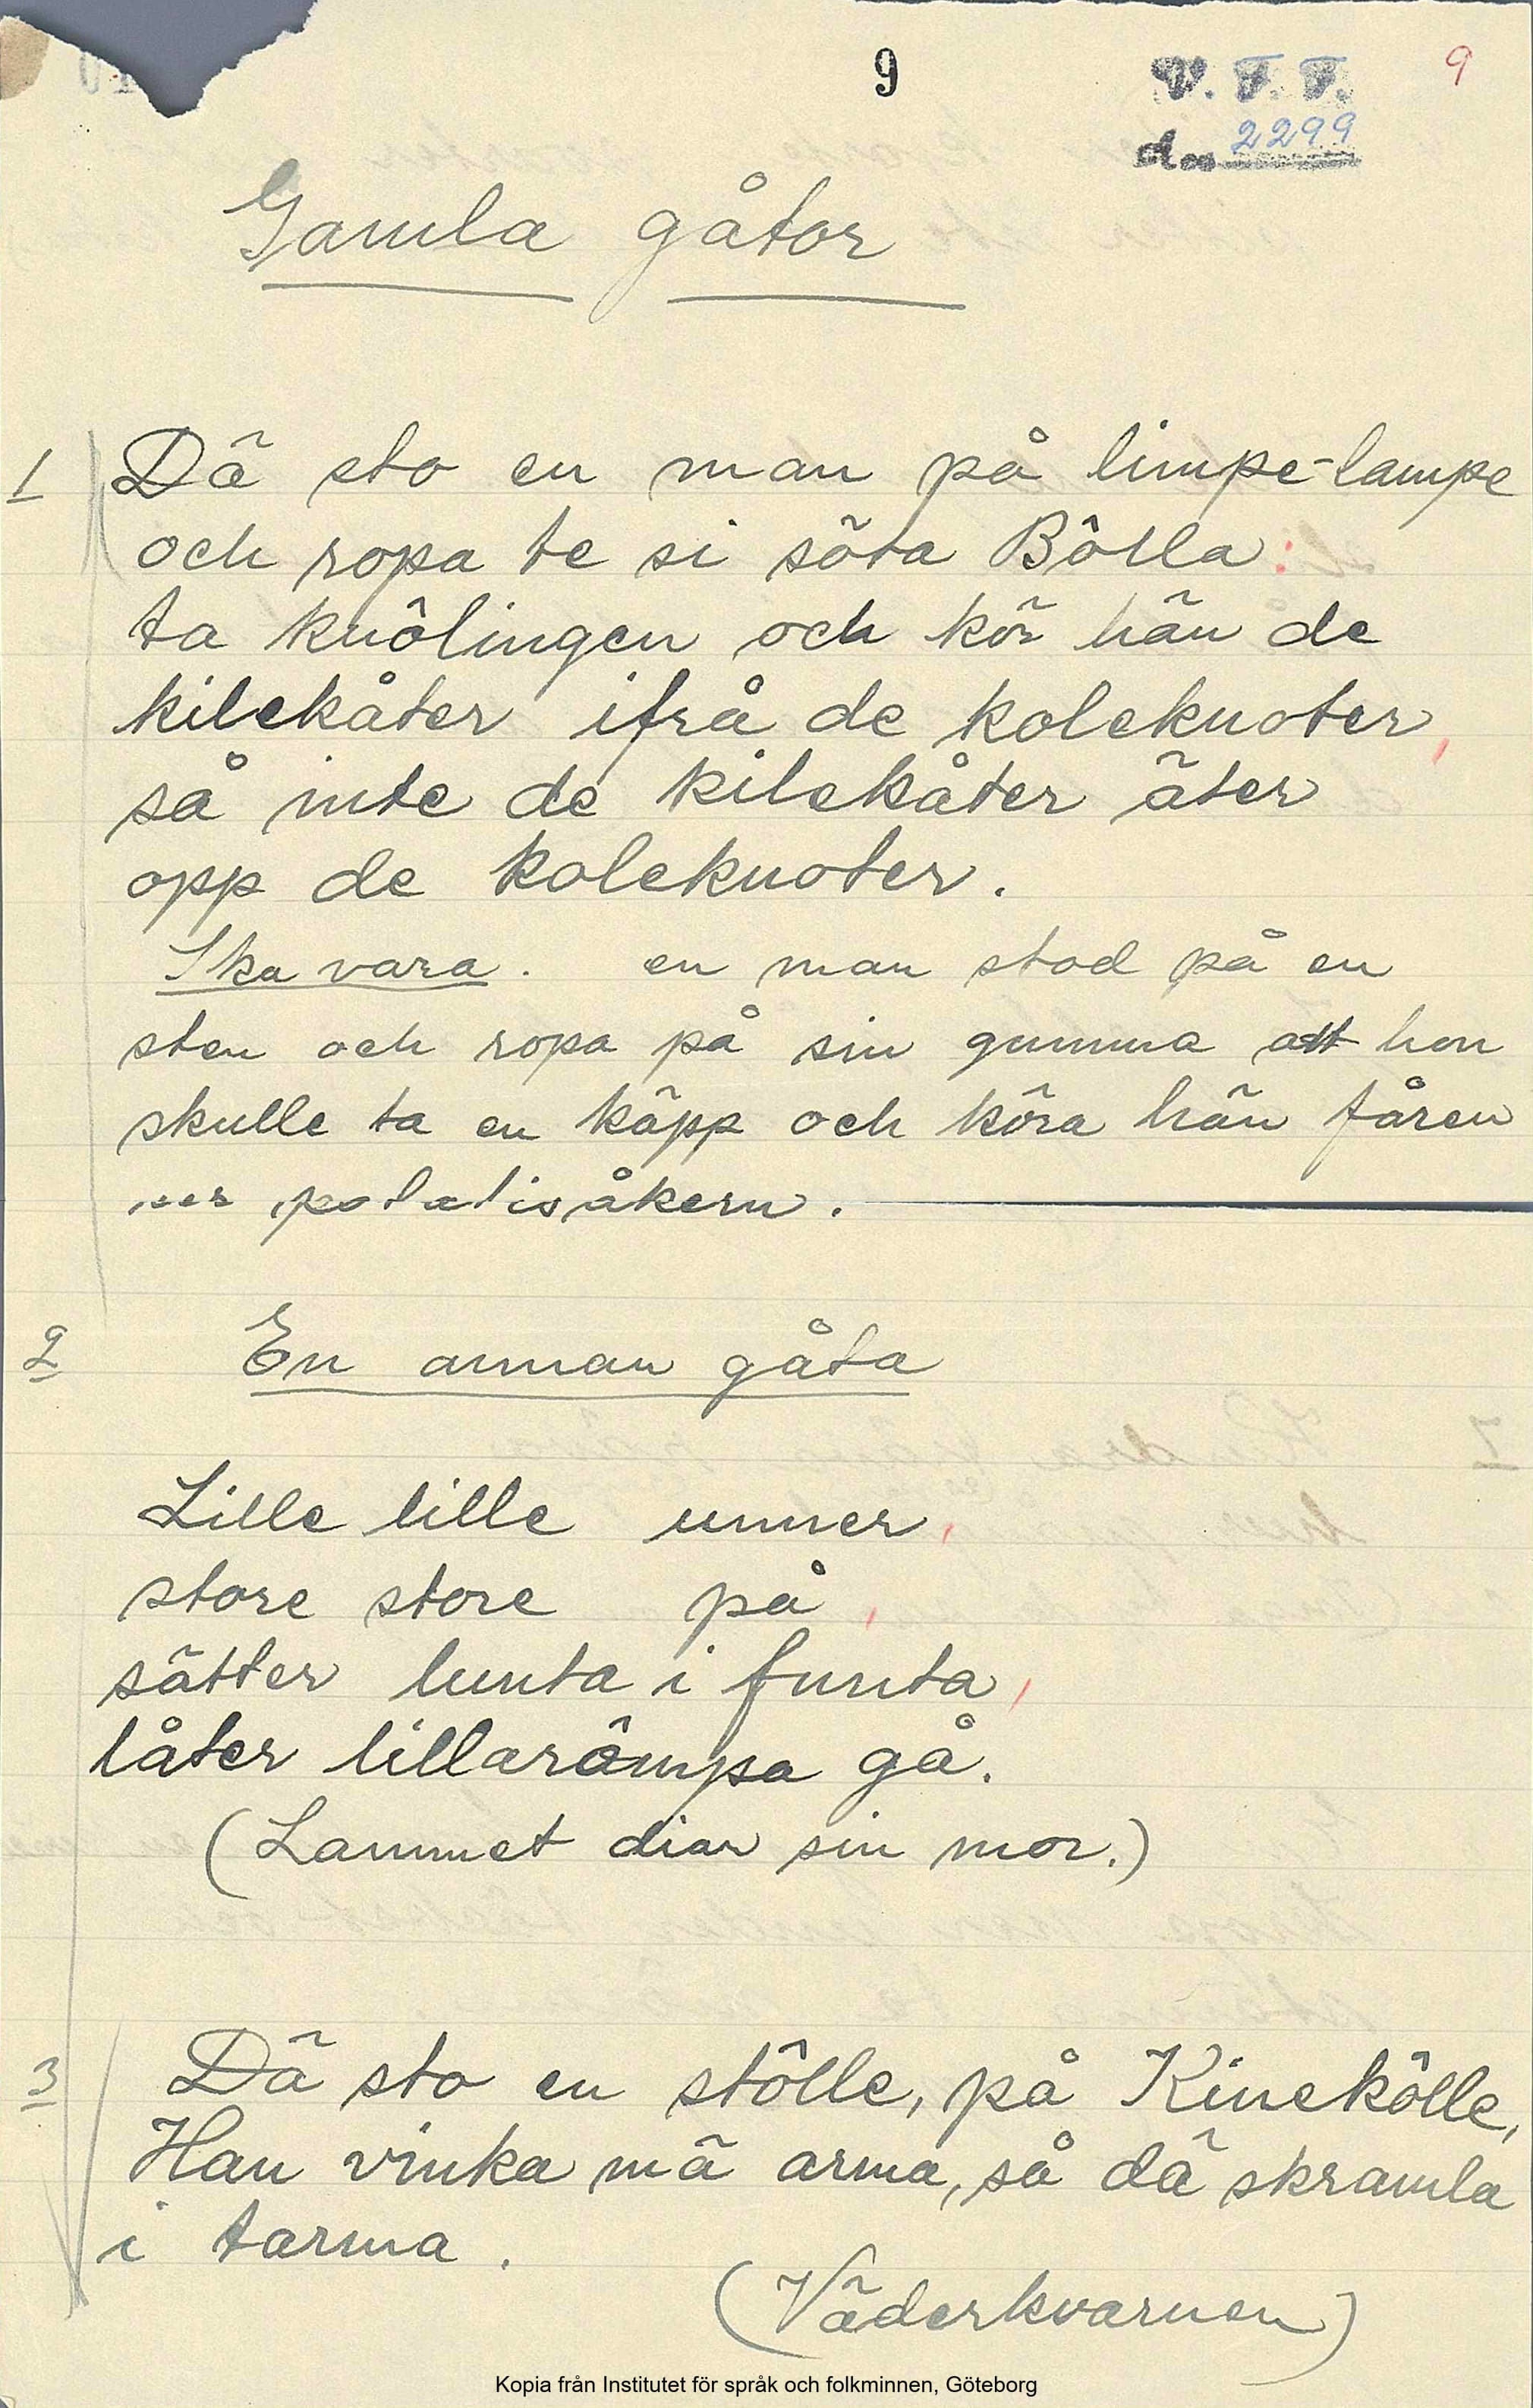 9
V. F. F.
9
2299
Gamla gåtor
1 Dä sto en man på limpe-lampe
och ropa te si söta Bölla:
ta knölingen och kör hän de
kilekåter ifrå de koleknoter,
så inte de kilekåter äter
opp de koleknoter.
Ska vara. en man stod på en
sten och ropa på sin gumma att hon
skulle ta en käpp och köra hän fåren
ur potatisåkern.
2 En annan gåta
Lille lille unner,
store store på,
sätter lunta i funta,
låter lillarömpa gå.
(Lammet diar sin mor.)
3 Dä sto en stölle, på Kinekölle,
Han vinka mä arma, så dä skramla
i tarma.
(Väderkvarnen)
Kopia från Institutet för språk och folkminnen, Göteborg